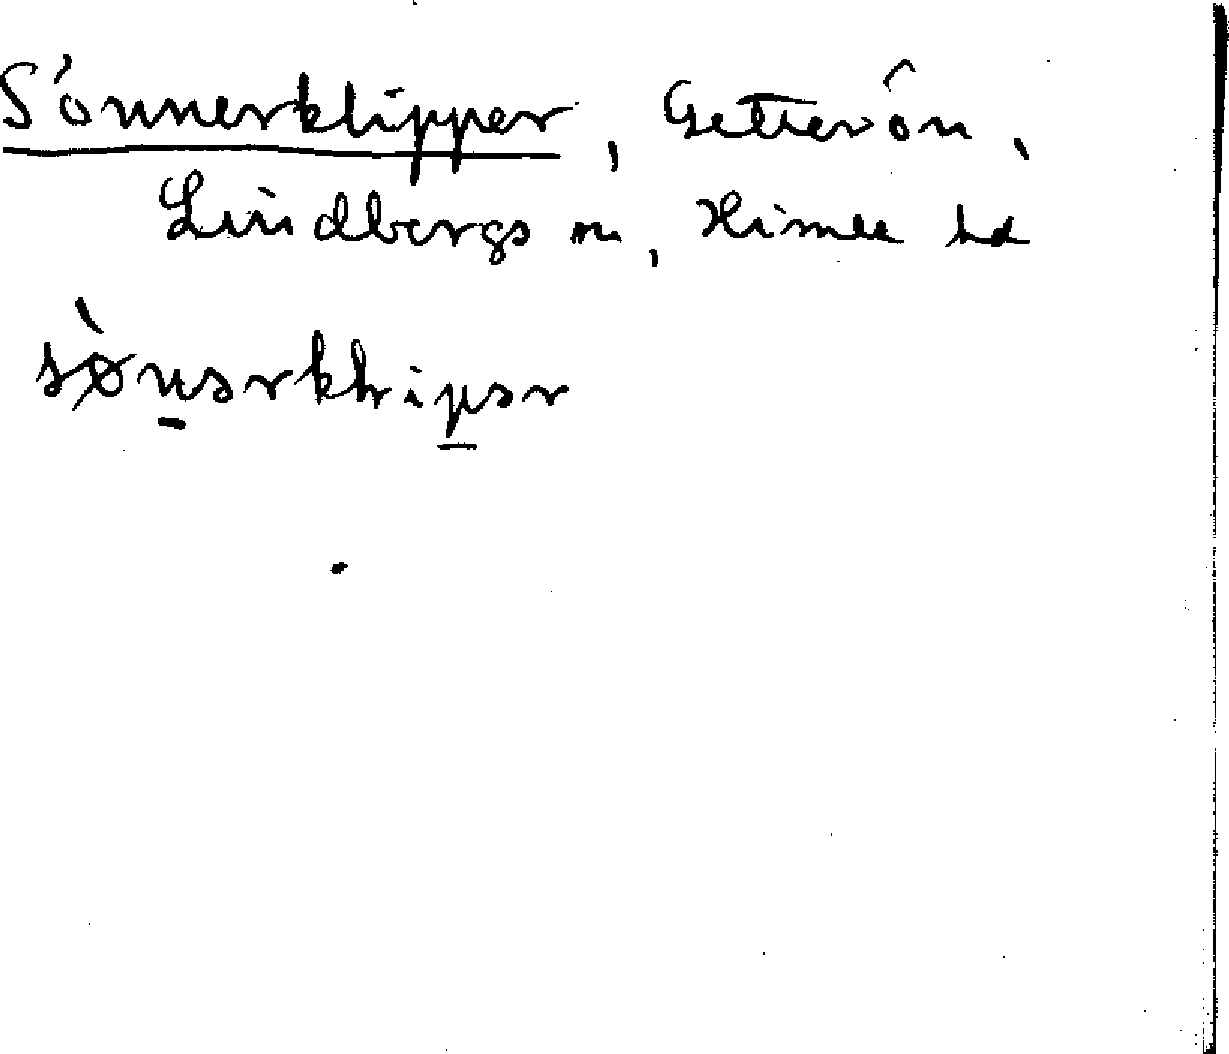 Sönnerklipper, Getterön,
Lindbergs sn, Himle hd
sønərklipər